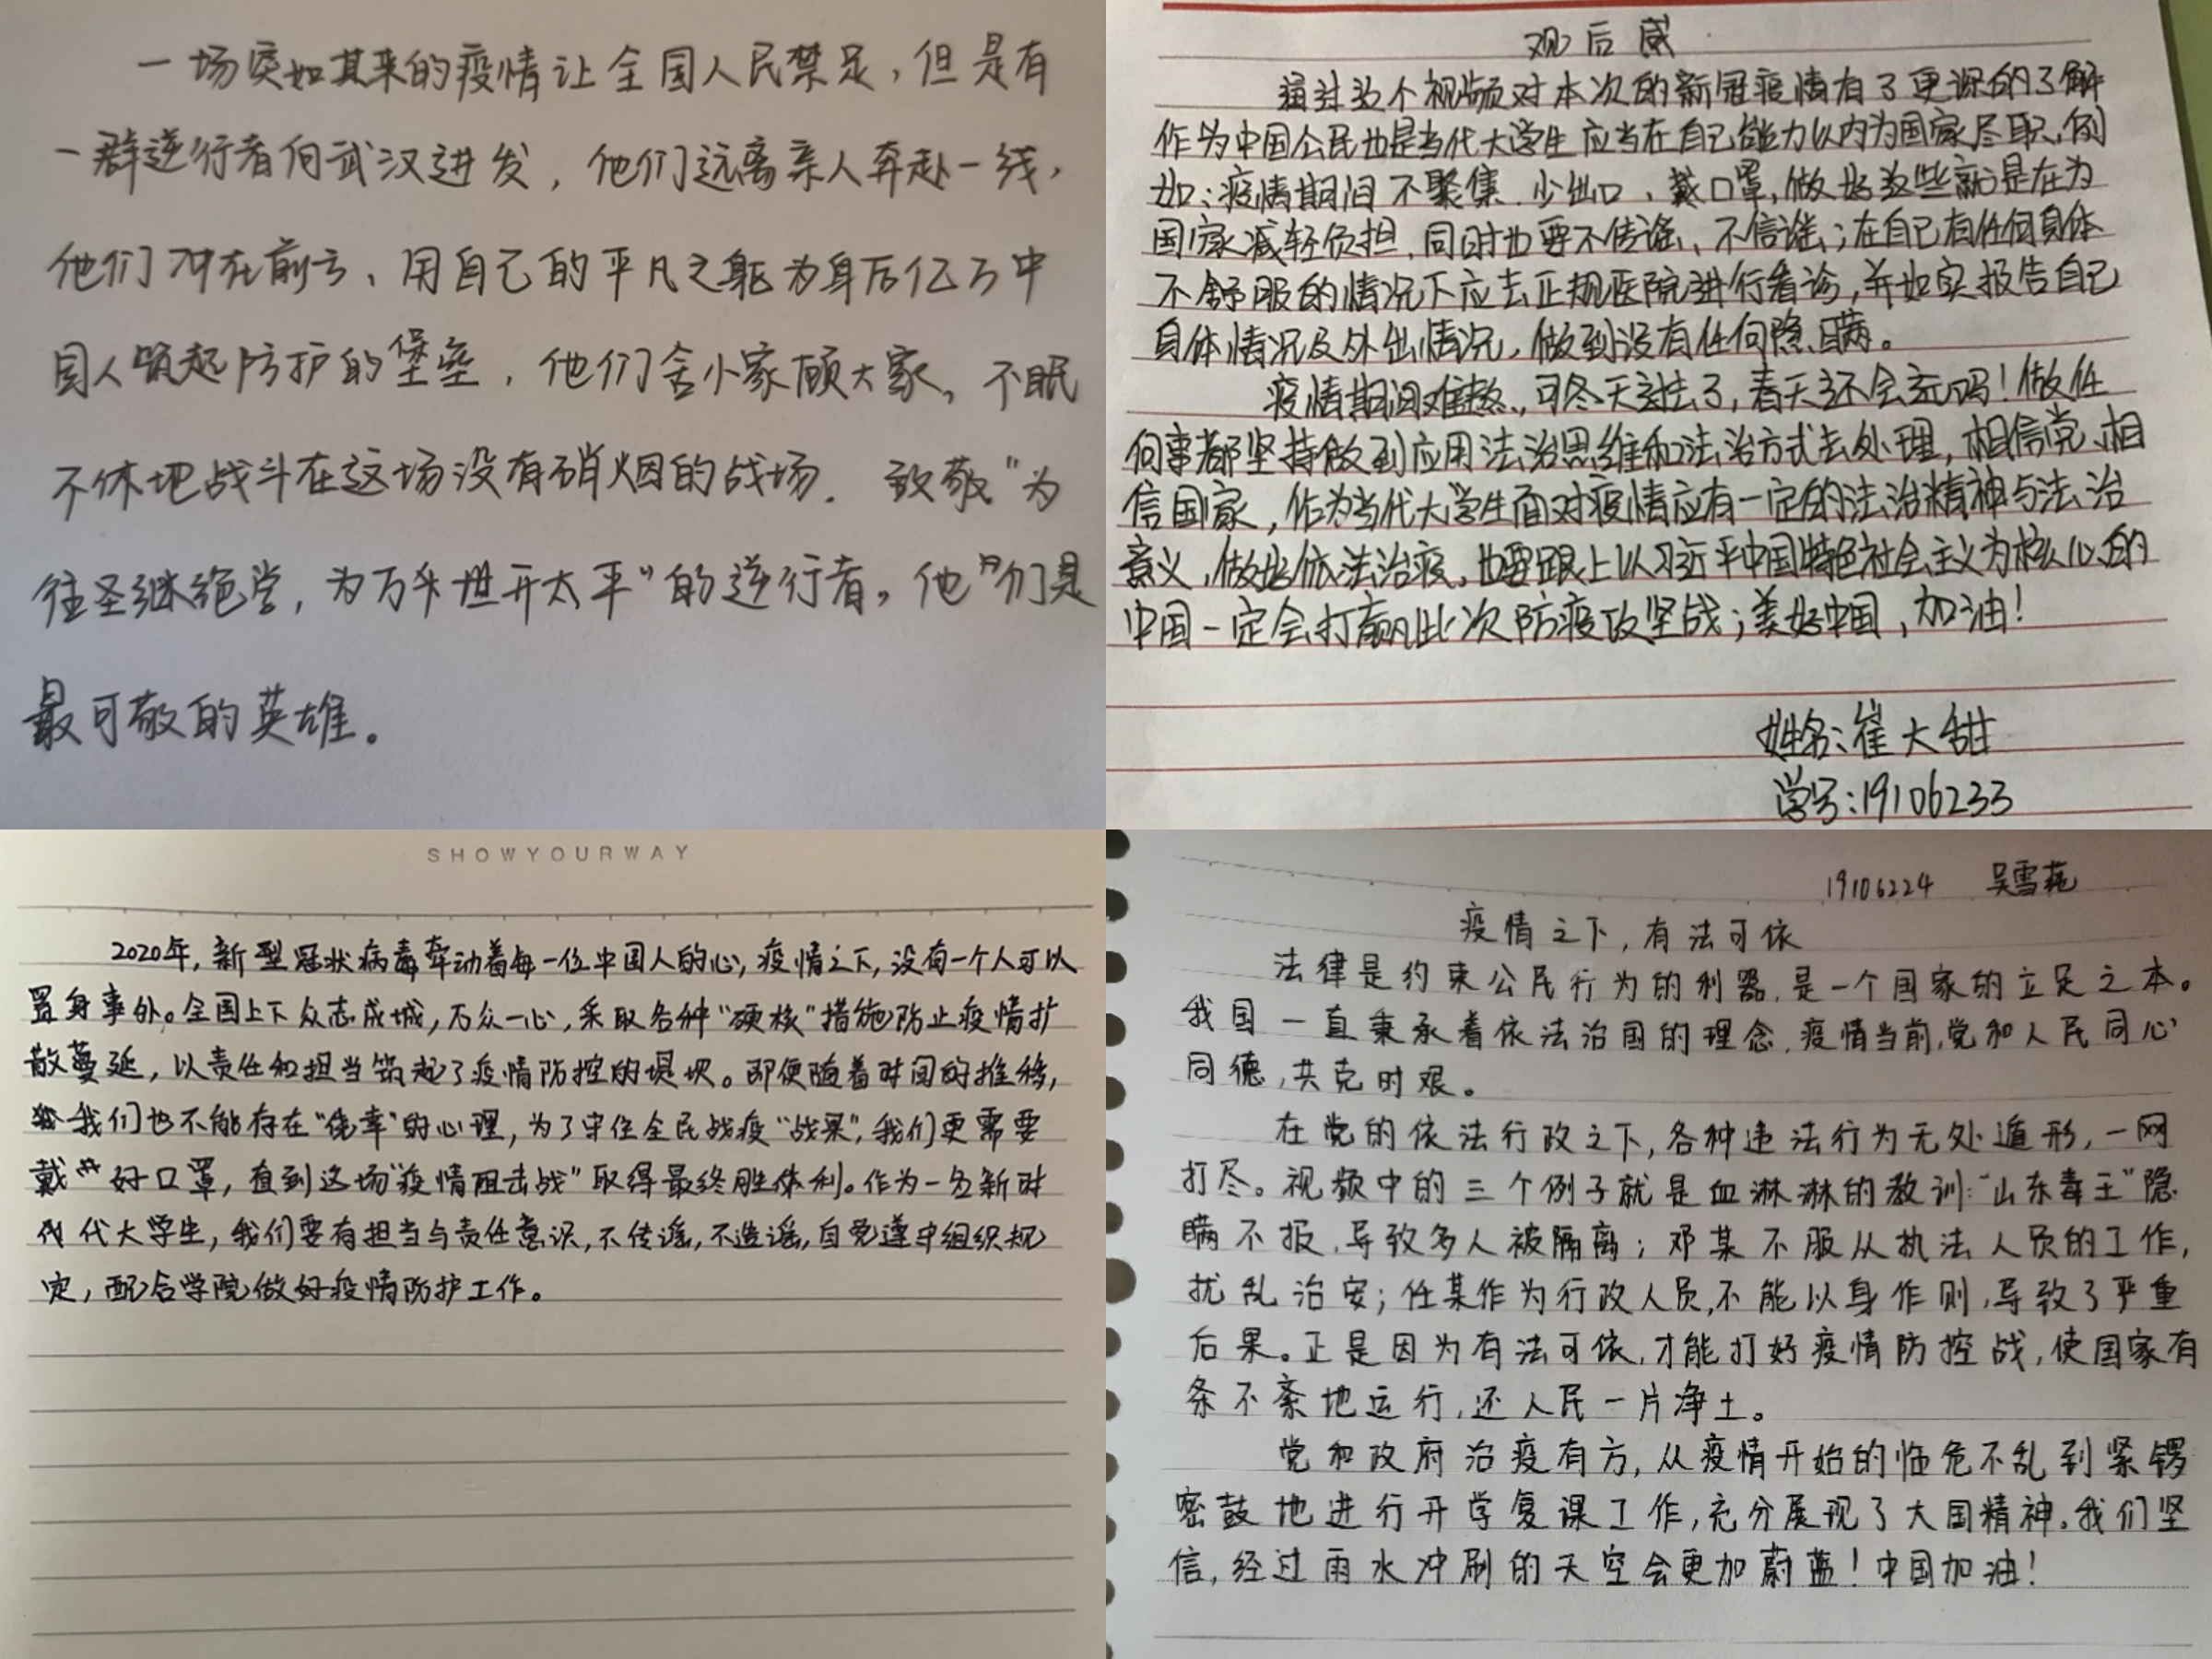 一场突如其来的疫情让全国人民禁足,但是有
一群逆行者向武汉进发,他们远离亲人奔赴一线,
他们冲在前方、用自己的平凡之躯为身后亿万中
国人筑起防护的堡垒,他们舍小家顾大家,不眠
不休地战斗在这场没有硝烟的战场.致敬"为
往圣继绝学,为万世开太平"的逆行者,他们是
最可敬的英雄。
观后感
通过这个视频对本次的新冠疫情有了更深的了解
作为中国公民也是当代大学生应当在自己能力以内为国家尽职,例
如:疫情期间不聚集、少出口、戴口罩,做好这些就是在为
国家减轻负担,同时也要不传谣、不信谣;在自己有任何身体
不舒服的情况下应去正规医院进行看诊,并如实报告自己
身体情况及外出情况,做到没有任何隐瞒。
疫情期间难熬,可冬天过去了,春天还会远吗!做任
何事都坚持做到应用法治思维和法治方式去处理,相信党、相
信国家,作为当代大学生面对疫情应有一定的法治精神与法治
意义,做好依法治疫,也要跟上以习近平中国特色社会主义为核心的
中国一定会打赢此次防疫攻坚战;美好中国,加油!
姓名:崔大甜
学号:19106233
SHOWYOURWAY
2020年,新型冠状病毒牵动着每一位中国人的心,疫情之下,没有一个人可以
置身事外。全国上下众志成城,万众一心,采取各种"硬核"措施防止疫情扩
散蔓延,以责任和担当筑起了疫情防控的堤坝。即便随着时间的推移,
我们也不能存在"侥幸"的心理,为了守住全民战疫"战果",我们更需要
戴好口罩,直到这场"疫情阻击战"取得最终胜利。作为一名新时
代大学生,我们要有担当与责任意识,不传谣,不造谣,自觉遵守组织规
定,配合学院做好疫情防护工作。
19106224 吴雪苑
疫情之下,有法可依
法律是约束公民行为的利器,是一个国家的立足之本。
我国一直秉承着依法治国的理念,疫情当前,党和人民同心
同德,共克时艰。
在党的依法行政之下,各种违法行为无处遁形,一网
打尽。视频中的三个例子就是血淋淋的教训:"山东毒王"隐
瞒不报,导致多人被隔离;邓某不服从执法人员的工作,
扰乱治安;任某作为行政人员,不能以身作则,导致了严重
后果。正是因为有法可依,才能打好疫情防控战,使国家有
条不紊地运行,还人民一片净土。
党和政府治疫有方,从疫情开始的临危不乱到紧锣
密鼓地进行开学复课工作,充分展现了大国精神。我们坚
信,经过雨水冲刷的天空会更加蔚蓝!中国加油!